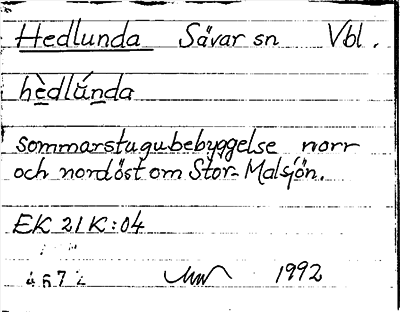 Hedlunda Sävar sn Vbl.
hèdlúnda
sommarstugubebyggelse norr
och nordöst om Stor-Malsjön.
EK 21K:04
1992